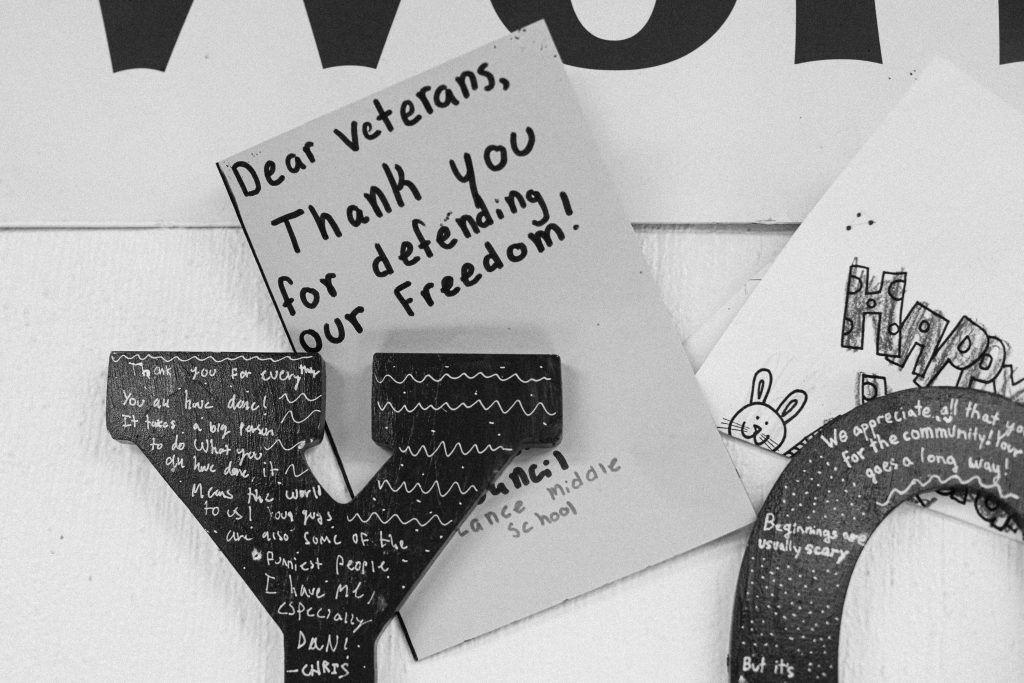 Dear Veterans,
Thank you
for defending
our Freedom!
uncil
Lance middle
School
HAPPY
Thank you For everything
You all have done!
It takes a big person
to do what you
all have done. it
Means the world
to us! Your guys
are also some of the
Funniest people
I have met,
especially
DANI
-CHRIS
We appreciate all that you
for the community! Your
goes a long way!
Beginnings are
usually scary
But it's